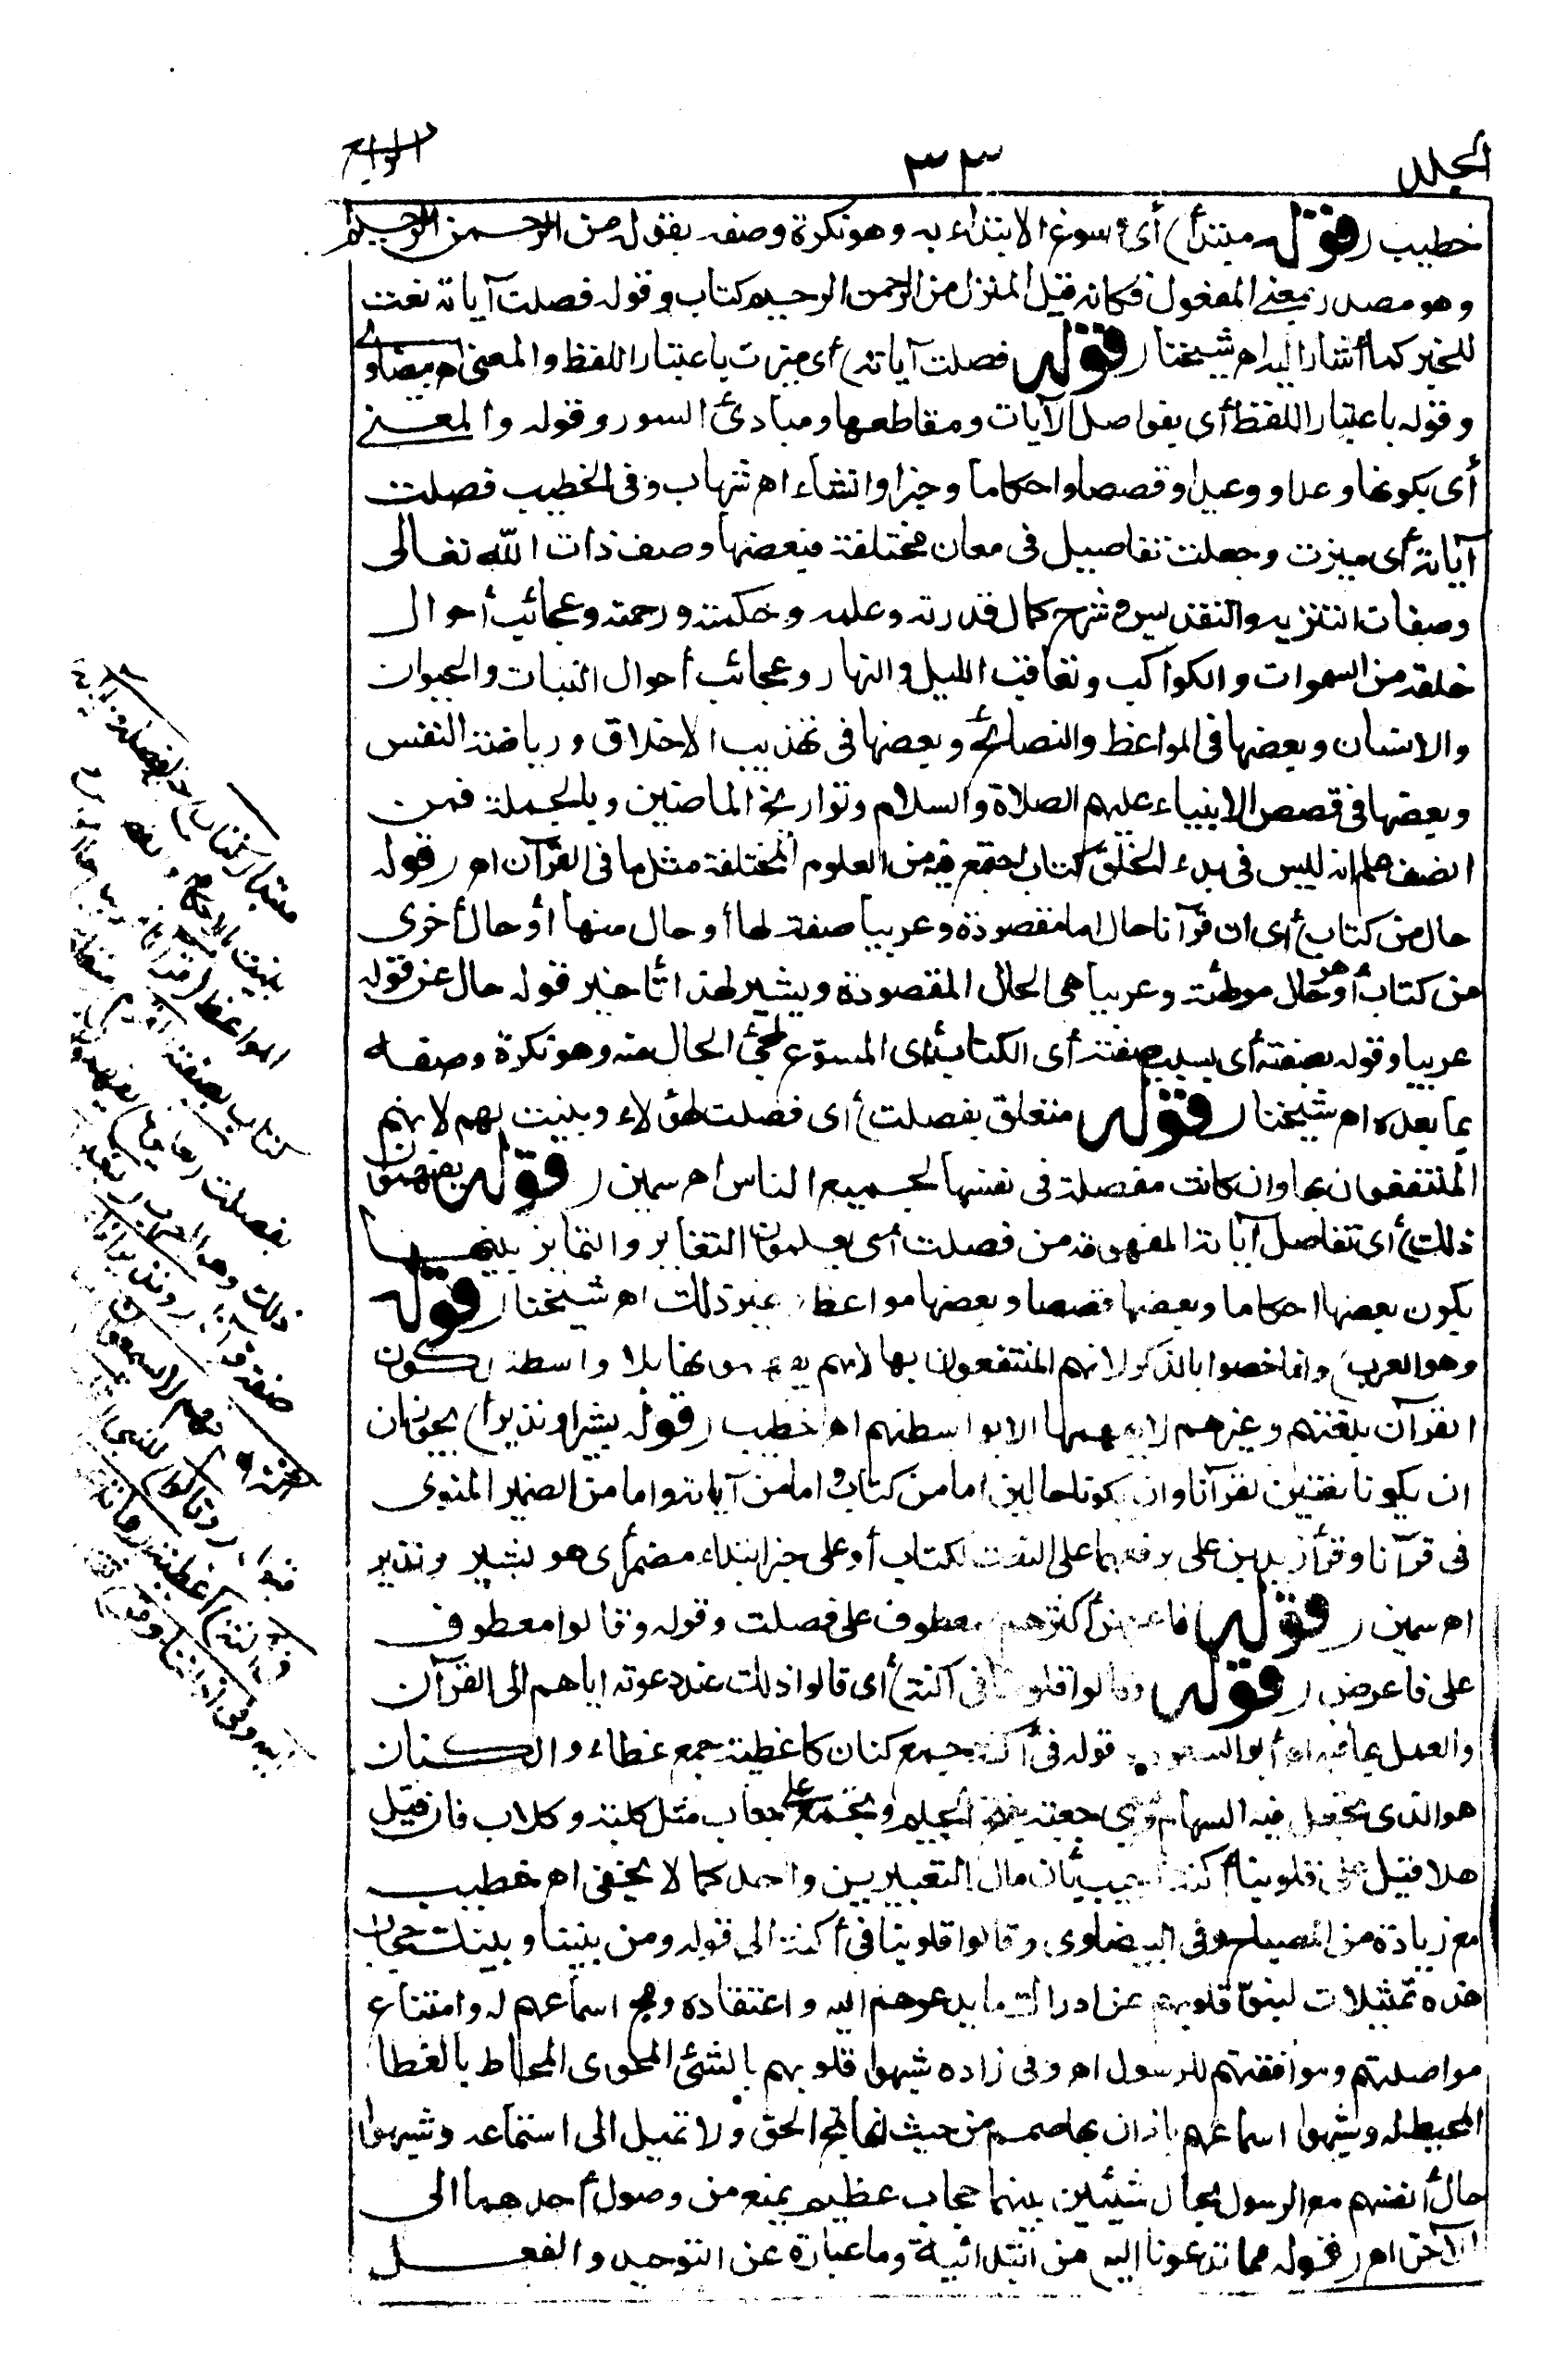 الجلد
٣٣
الرابع
خطيب (قوله مبتدأ) أي وسوغ الابتداء به وهو نكرة وصفه بقوله من الرحمن الرحيم
وهو مصدر بمعنى المفعول فكانه قيل المنزل من الرحمن الرحيم كتاب وقوله فصلت آياته نعت
للخبر كما أشار اليه اه شيخنا (قوله فصلت آياته) أي ميزت باعتبار اللفظ والمعنى اه بيضاوي
وقوله باعتبار اللفظ أي بفواصل الآيات ومقاطعها ومبادئ السور وقوله والمعنى
أي بكونها وعدا ووعيدا وقصصا واحكاما وخبرا وانشاء اه شهاب وفي الخطيب فصلت
آياته أي ميزت وجعلت تفاصيل في معان مختلفة فبعضها وصف ذات الله تعالى
وصفات التنزيه والتقديس وشرح كمال قدرته وعلمه وحكمته ورحمته وعجائب أحوال
خلقه من السموات والكواكب وتعاقب الليل والنهار وعجائب أحوال النبات والحيوان
والانسان وبعضها في المواعظ والنصائح وبعضها في تهذيب الاخلاق ورياضة النفس
وبعضها في قصص الانبياء عليهم الصلاة والسلام وتواريخ الماضين وبالجملة فمن
انصف علم انه ليس في بدء الخلق كتاب اجتمع فيه من العلوم المختلفة مثل ما في القرآن اه (قوله
حال من كتاب) أي ان قرآنا حال اما مقصودة وعربيا صفة لها أو حال منها أو حال أخرى
من كتاب أو هو حال موطئة وعربيا هي الحال المقصودة ويشير لهذا تأخير قوله حال عن قوله
عربيا وقوله بصفته أي بسبب صفته أي الكتاب أي المسوغ لمجئ الحال منه وهو نكرة وصفه
بما بعده اه شيخنا (قوله متعلق بفصلت) أي فصلت لهؤلاء وبينت لهم لانهم
المنتفعون بها وان كانت مفصلة في نفسها لجميع الناس اه سمين (قوله يفهمون
ذلك) أي تفاصيل آياته المفهومة من فصلت أي يعلمون التغاير والتمايز بينها
بكون بعضها احكاما وبعضها قصصا وبعضها مواعظ غير ذلك اه شيخنا (قوله
وهو العرب) وانما خصوا بالذكر لانهم المنتفعون بها لانهم بلا واسطة لكون
القرآن بلغتهم وغيرهم لا يفهمها الا بواسطتهم اه خطيب (قوله بشيرا ونذيرا) يجوز ان
ان يكونا نعتين لقرآنا وان يكونا حالين اما من كتاب واما من آياته واما من الضمير المنوى
في قرآنا وقرأ زيد بن على برفعهما على النعت لكتاب أو على خبر ابتداء مضمر أي هو بشير ونذير
اه سمين (قوله فاعرض أكثرهم) معطوف على فصلت وقوله وقالوا معطوف
على فاعرض (قوله وقالوا قلوبنا في أكنة) أي قالوا ذلك عند دعوته اياهم الى القرآن
والعمل بما فيه اه أبو السعود قوله في أكنة جمع كنان كاغطية جمع غطاء والكنان
هو الذي يجعل فيه السهام جعبة بفتح الجيم وتجمع على جعاب مثل كلبة وكلاب فان قيل
هلا قيل على قلوبنا أكنة أجيب بأن مال التعبيرين واحد كما لا يخفى اه خطيب
مع زيادة من المصباح وفي البيضاوى وقالوا قلوبنا في أكنة الى قوله ومن بيننا وبينك حجاب
هذه تمثيلات لنبوّ قلوبهم عن ادراك ما يدعوهم اليه واعتقاده ومج اسماعهم له وامتناع
مواصلتهم وموافقتهم للرسول اه وفي زاده شبهوا قلوبهم بالشئ المحوى المحاط بالغطا
المحيط له وشبهوا اسماعهم باذان بها صمم من حيث انها تمج الحق ولا تميل الى استماعه وشبهوا
حال أنفسهم مع الرسول بحال شيئين بينهما حجاب عظيم يمنع من وصول أحدهما الى
الآخر اه (قوله مما تدعونا اليه) من ابتدائية وما عبارة عن التوحيد والفعل